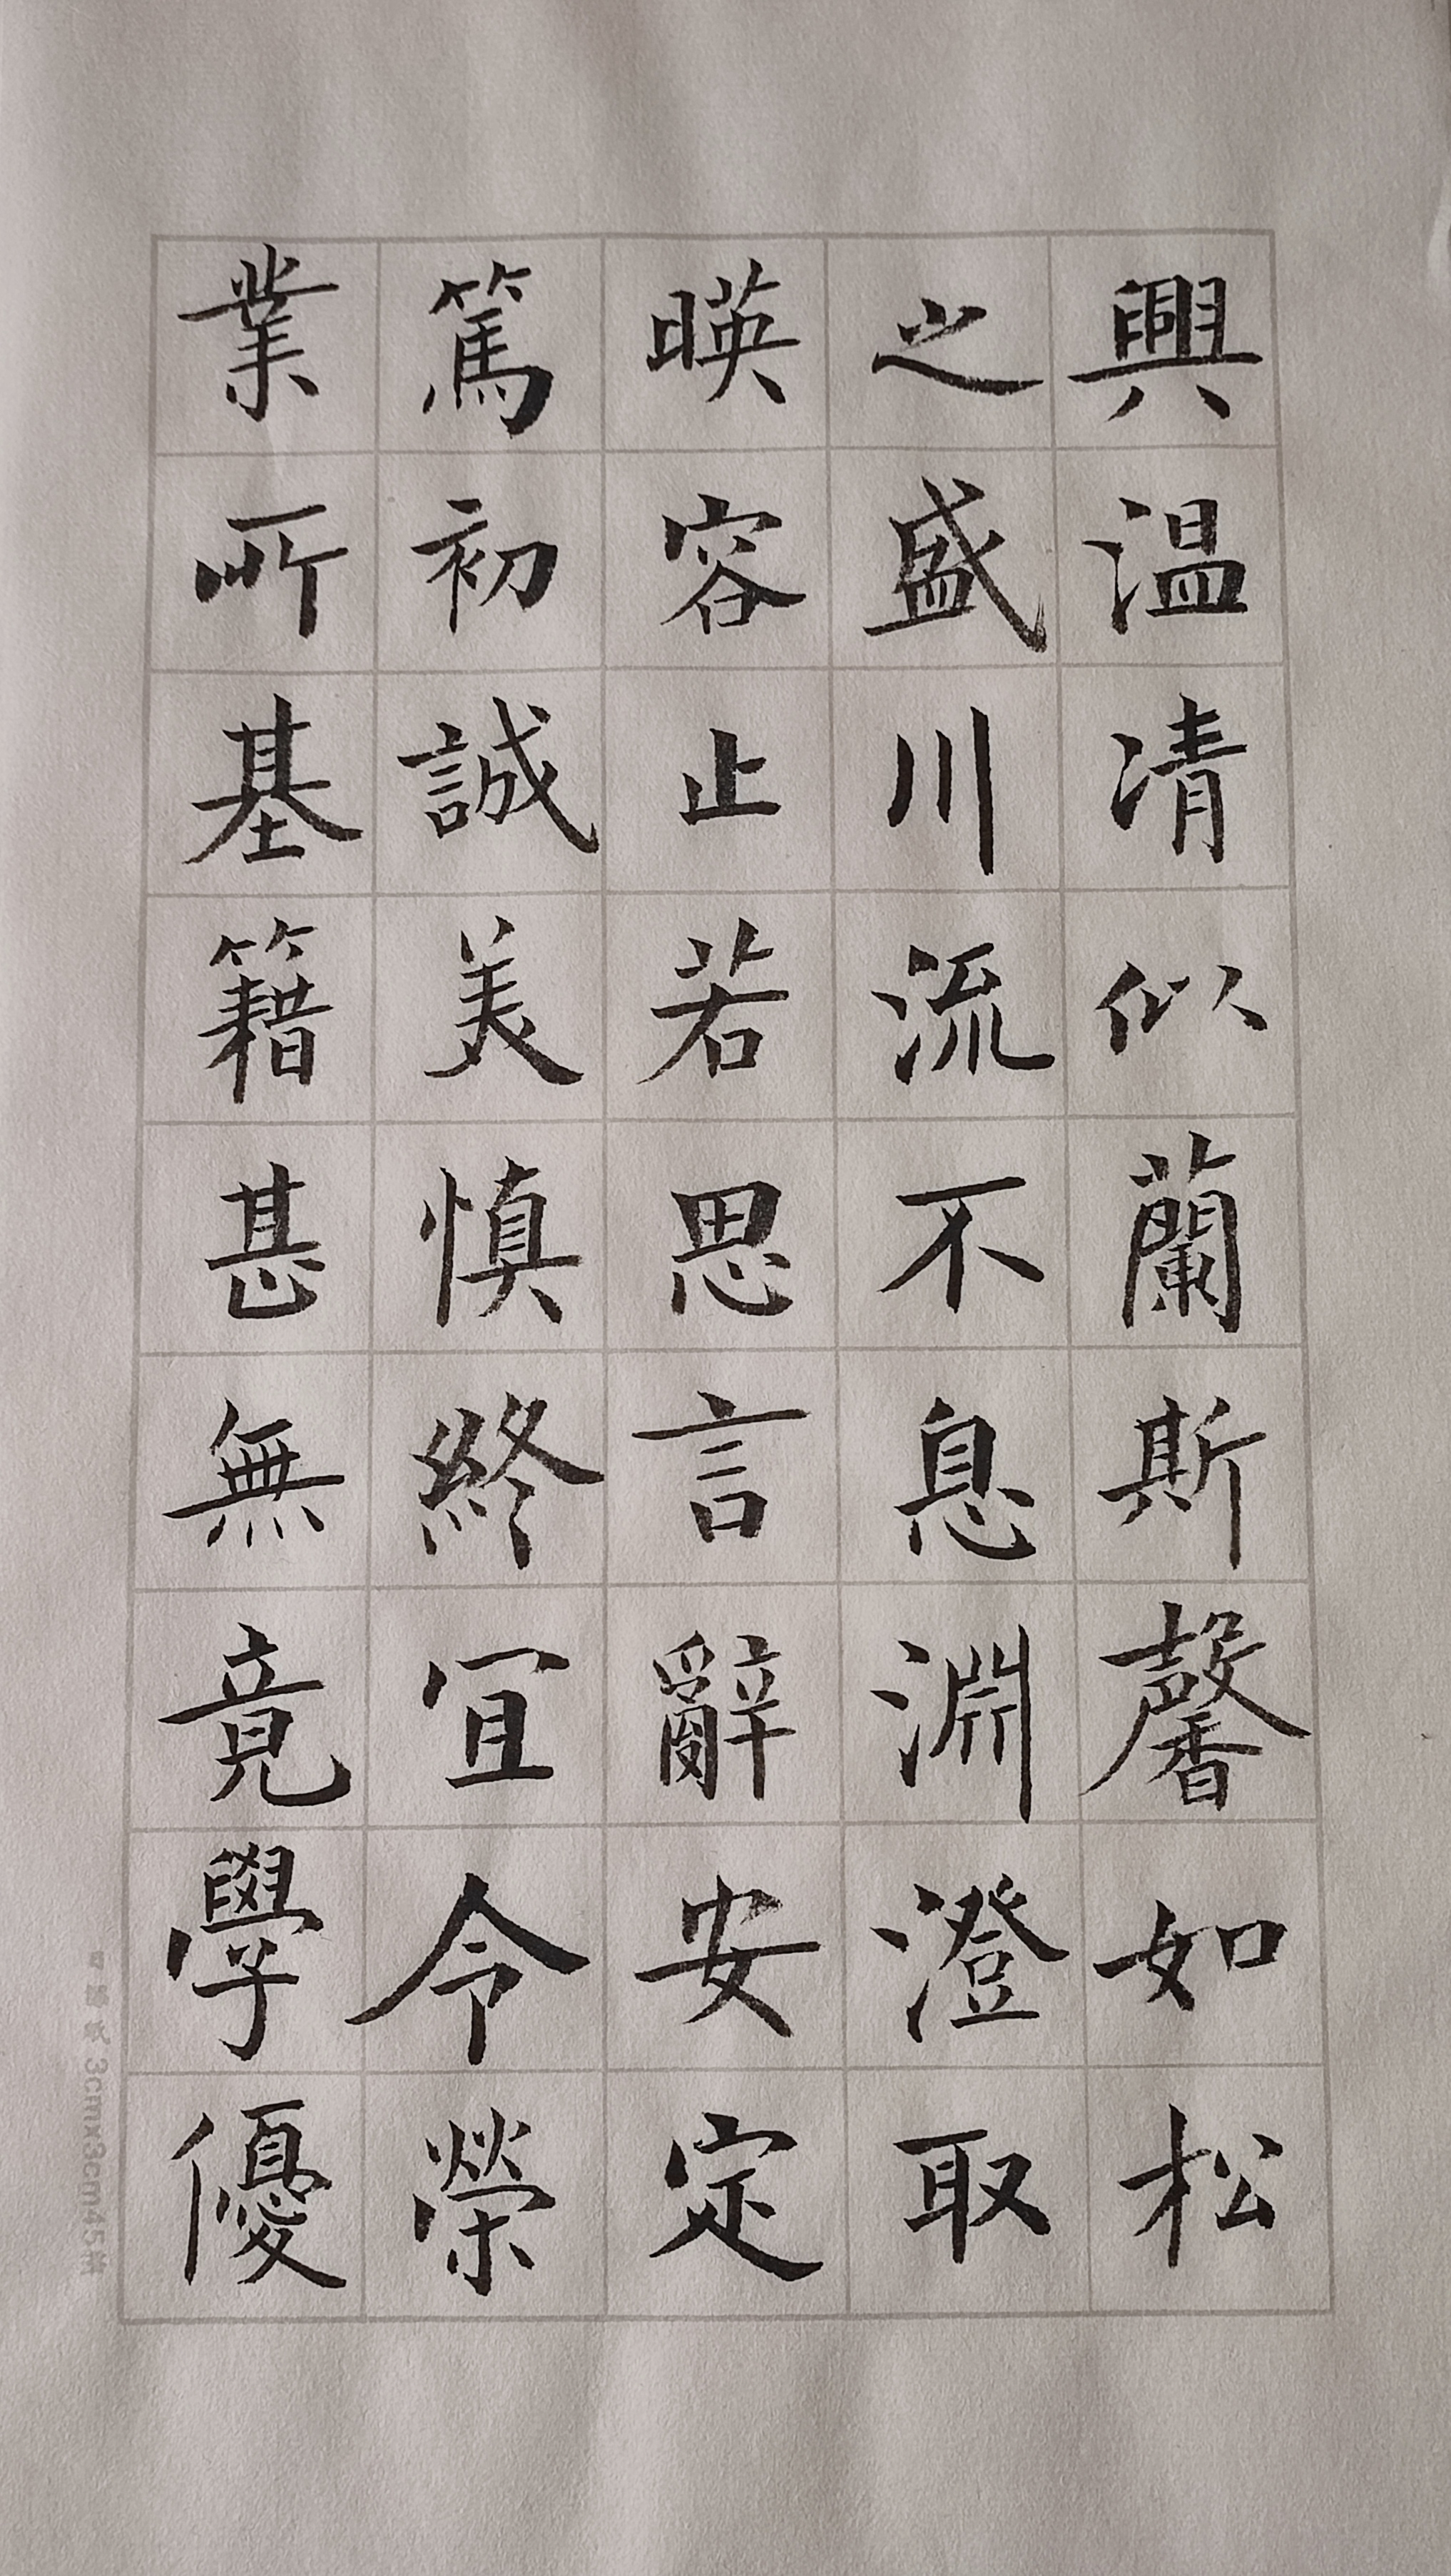 興温凊似蘭斯馨如松
之盛川流不息淵澄取
暎容止若思言辭安定
篤初誠美慎終宜令榮
業所基籍甚無竟學優
3cmx3cm45格